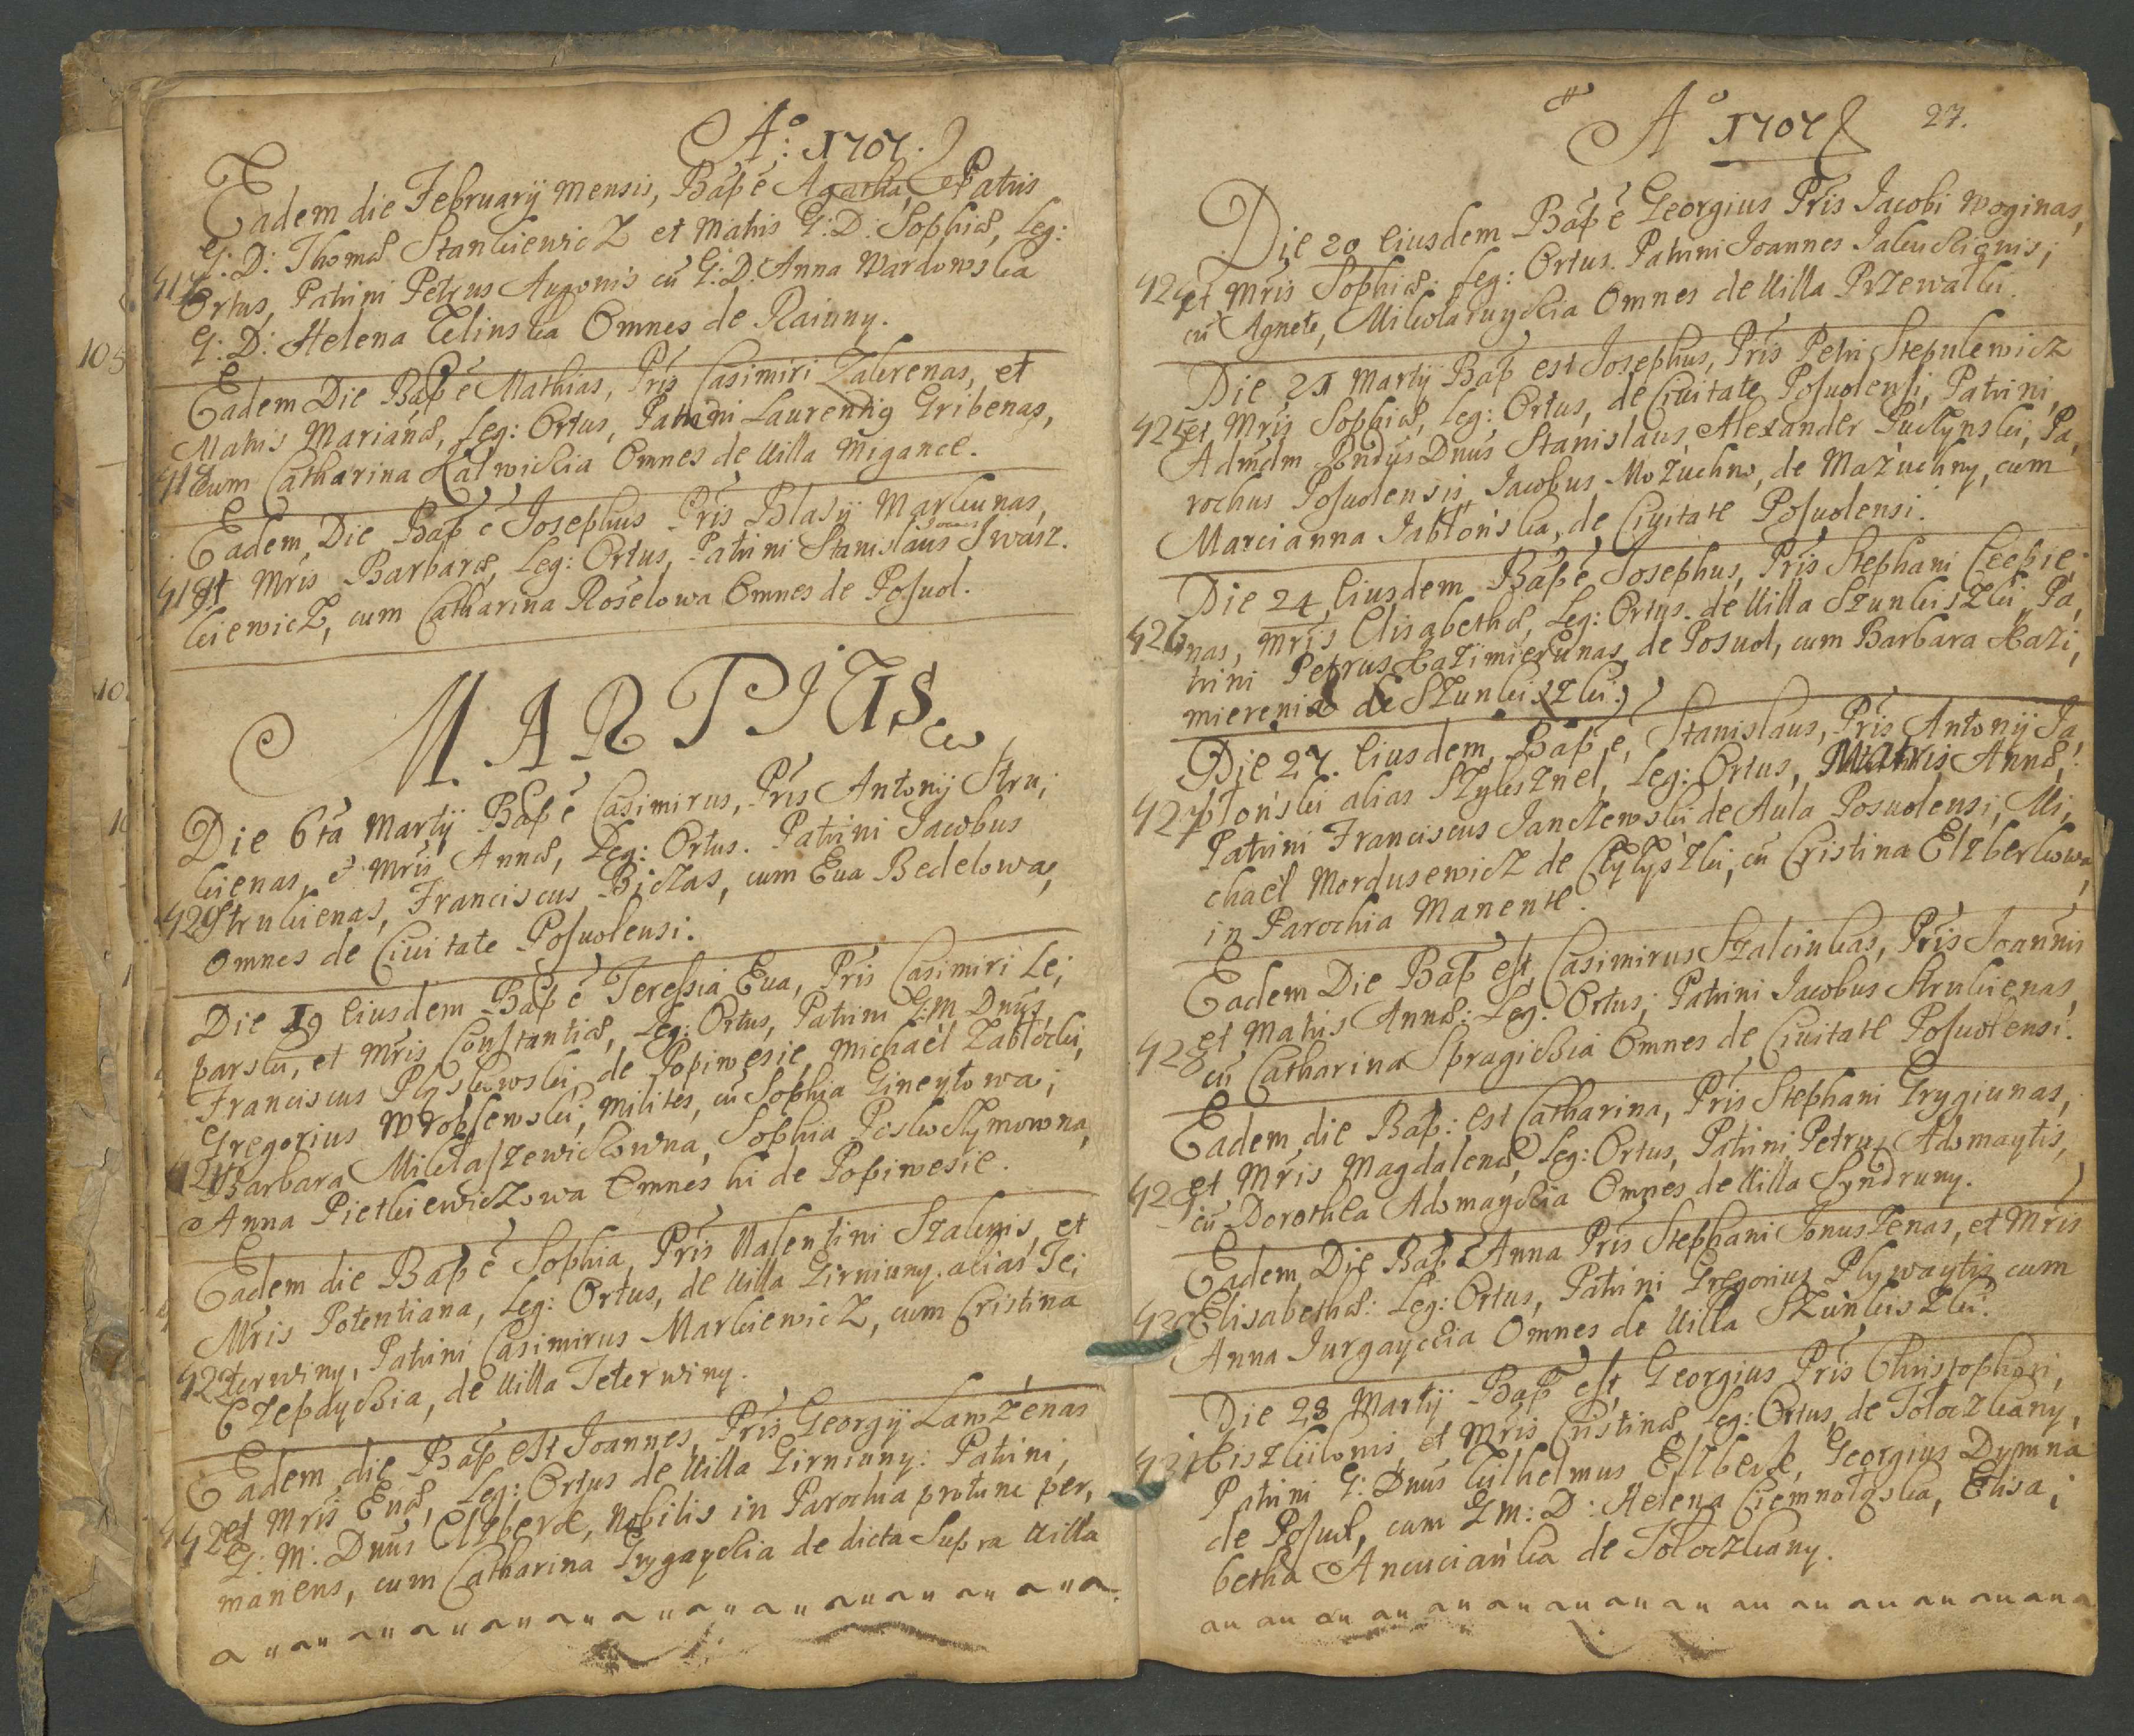 Aº: 1707.
Eadem die Februarij mensis, Bap̃ ẽ Agatha, Patris
G: D: Thomæ Stankiewicz et Matris G: D: Sophiæ, Leg:
417
Ortus, Patrini Petrus cũ G: D: Anna Wardowska
G: D: Helena Zelinska Omnes de Raiuny.
Eadem Die Bap̃ ẽ Mathias, Pr̃is Casimiri Zakrenas, et
Matris Marianæ, Leg: Ortus, Patrini Laurentig Gribenas,
418 cum Catharina Kalwickia Omnes de Villa Migance.
Eadem Die Bap̃ ẽ Josephus Pr̃is Blasij Markunas,
419 et Mr̃is Barbaræ, Leg: Ortus, Patrini Stanislaus Iwasz.
kiewicz, cum Catharina Roselowa Omnes de Posuol.
MARTIUS
Die 6ta Martij Bap̃ ẽ Casimirus, Pr̃is Antonij Stru;
kienas, & Mr̃is Annæ, Leg: Ortus. Patrini Jacobus
420 Strukienas, Franciscus Biczas, cum Eua Bedelowa,
Omnes de Ciuitate Posuolensi.
Die 19 Eiusdem Bap̃ ẽ Teressia Eua, Pr̃is Casimiri Le;
parski, et Mr̃is Constantiæ, Leg: Ortus, Patrini G: M Dnũs,
Franciscus Plyskowski de Popiwesie, Michaël Zabłocki,
Gregorius Wroblewski, Milites, cũ Sophia Gineytowa;
421 Barbara Mikłaszewiczowna, Sophia
Anna Pietkiewiczowa Omnes hi de Popiwesie.
Eadem die Bap̃ ẽ Sophia, Pr̃is Valentini Szaknis, et
Mr̃is Potentiana, Leg: Ortus, de Villa Girniuny. alias Te;
422 terwiny, Patrini Casimirus Markiewicz, cum Cristina
Czepayckia, de Villa Teterwiny.
Eadem die Bap̃ est Joannes, Pr̃is Georgij Lawzenas
et Mr̃is Euæ, Leg: Ortus de Villa Girniuny: Patrini,
423 G: M: Dnũs Elzberk, Nobilis in Parochia protunc per,
manens, cum Catharina Grygayckia de dicta Supra Villa
Aº 1707
27.
Die 20 Eiusdem Bap̃ ẽ Georgius Pr̃is Jacobi Woginas,
424 et Mr̃is Sophiæ. Leg: Ortus. Patrini Joannes
cũ Agnete, Mikolaiuyckia Omnes de Villa Przewalki.
Die 21 Martij Bap̃ est Josephus, Pr̃is Petri Stepulewicz
425 et Mr̃is Sophiæ, Leg: Ortus, de Ciuitate Posuolensi, Patrini,
Admdm Rndũs Dnũs Stanislaus Alexander Puczynski, Pa,
rochus Posuolensis, Jacobus Możuchno, de Mażuchny, cum
Marcianna Jabłońska, de Ciuitate Posuolensi.
Die 24 Eiusdem Bap̃ ẽ Josephus, Pr̃is Stephani Ceepie
426 nas, Mr̃is Elisabethæ, Leg: Ortus. de Villa Szunkiszki, Pa,
trini Petrus Kazimierunas, de Posuol, cum Barbara Kazi,
mierenia de Szunkiszki.
Die 27. Eiusdem, Bap̃ ẽ, Stanislaus, Pr̃is Antonij Ja,
427 błoński alias Szyksznel, Leg: Ortus, Matris Annæ,
Patrini Franciscus Janczewski de Aula Posuolensi, Mi,
chaël Mordusewicz de Czyżyszki, cũ Cristina Elzberkowa,
in Parochia Manente.
Eadem Die Bap̃ est, Casimirus Szalciukas, Pr̃is Joannis
et Matris Annæ: Leg: Ortus; Patrini Jacobus Strukienas,
428 cũ Catharina Spragickia Omnes de Ciuitate Posuolensi.
Eadem die Bap̃: est Catharina, Pr̃is Stephani Grygiunas,
et Mr̃is Magdalenæ, Leg: Ortus, Patrini Petrus Adomaytis,
429 cũ Dorothea Adomayckia Omnes de Villa Syndruny.
Eadem Die Bap̃ ẽ Anna Pr̃is Stephani Jonuszenas, et Mr̃is
430 Elisabethæ: Leg: Ortus, Patrini Gregorius Plywaytis cum
Anna Jurgayckia Omnes de Villa Szunkiszki.
Die 28 Martij Bap̃ est, Georgius Pr̃is Christophori,
431 et Mr̃is Cristinæ, Leg: Ortus, de Tołoczkany,
Patrini G: Dnũs Gylhelmus Elzberk, Georgius Dymna
de Posuol, cum G M: D: Helena Ciemnołąska, Elisa;
betha Ancuciańka de Tołoczkany.